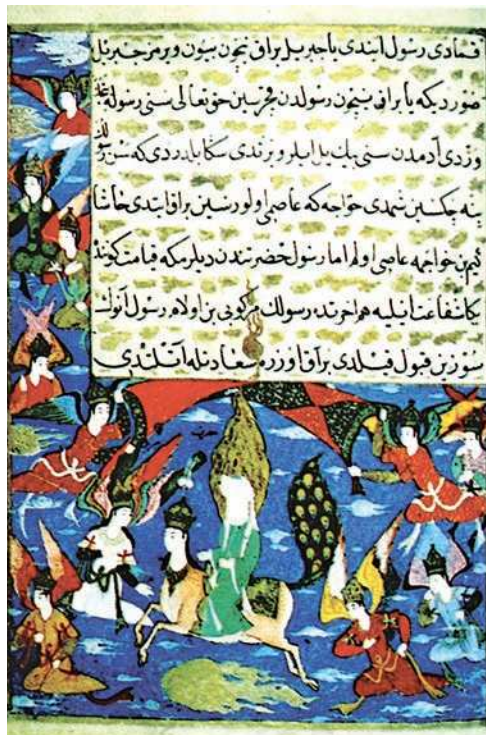 قمادی رسول ایتدی یا جبریل براق نیچون بیون ویرمز جبرئل
صوردیکه یا براق نیچون رسولدن قاچرسین حق تعالی سنی رسوله
وزدی آدمدن سنی بیك ییل ایلرو یرتدی سكا
چكسین شمدی خواجه كه عاصی اولورسین براق ایتدی حاشا
كیم بن خواجمه عاصی اولم اما رسول حضرتندن دیلرمكه قیامت كونده
بكا شفاعت ایلیه هم اخرتده رسولك مركوبی بن اولام رسول آنوك
سوزین قبول قیلدی براق اوزره سعادتله آتلندی